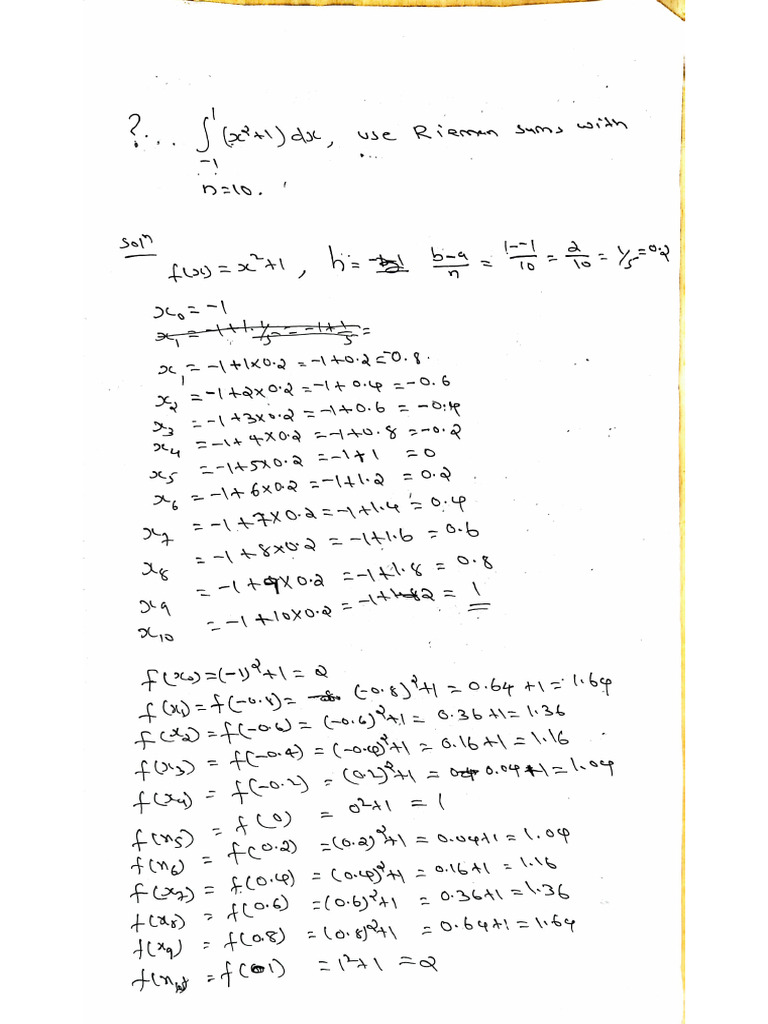 ?... ∫₋₁¹ (x²+1) dx, use Rieman sums with
n=10.
Solⁿ
f(x) = x²+1, h = b-a/n = 1--1/10 = 2/10 = 1/5 = 0.2
x₀ = -1
x₁ = -1+1·1/5 = -1+1/5 =
x₁ = -1+1×0.2 = -1+0.2 = -0.8.
x₂ = -1+2×0.2 = -1+0.4 = -0.6
x₃ = -1+3×0.2 = -1+0.6 = -0.4
x₄ = -1+4×0.2 = -1+0.8 = -0.2
x₅ = -1+5×0.2 = -1+1 = 0
x₆ = -1+6×0.2 = -1+1.2 = 0.2
x₇ = -1+7×0.2 = -1+1.4 = 0.4
x₈ = -1+8×0.2 = -1+1.6 = 0.6
x₉ = -1+9×0.2 = -1+1.8 = 0.8
x₁₀ = -1+10×0.2 = -1+2 = 1
f(x₀) = (-1)²+1 = 2
f(x₁) = f(-0.8) = (-0.8)²+1 = 0.64+1 = 1.64
f(x₂) = f(-0.6) = (-0.6)²+1 = 0.36+1 = 1.36
f(x₃) = f(-0.4) = (-0.4)²+1 = 0.16+1 = 1.16
f(x₄) = f(-0.2) = (0.2)²+1 = 0.04+1 = 1.04
f(x₅) = f(0) = 0²+1 = 1
f(x₆) = f(0.2) = (0.2)²+1 = 0.04+1 = 1.04
f(x₇) = f(0.4) = (0.4)²+1 = 0.16+1 = 1.16
f(x₈) = f(0.6) = (0.6)²+1 = 0.36+1 = 1.36
f(x₉) = f(0.8) = (0.8)²+1 = 0.64+1 = 1.64
f(x₁₀) = f(1) = 1²+1 = 2